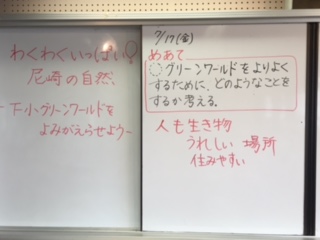 わくわくいっぱい!
尼崎の自然
－下小グリーンワールドを
よみがえらせよう－
9/17(金)
めあて
グリーンワールドをよりよく
するために、どのようなことを
するか考える。
人も生き物
うれしい 場所
住みやすい